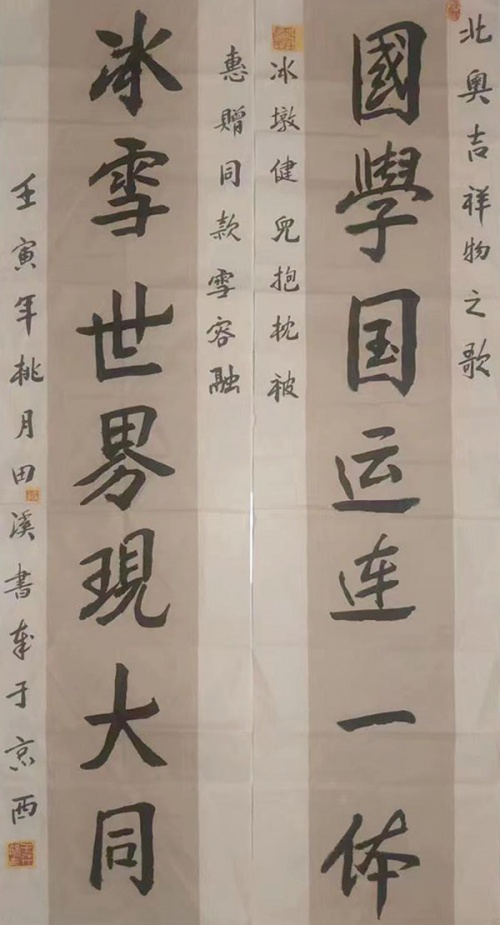 北奥吉祥物之歌
國學国运连一体
冰墩健兒抱枕被
惠赠同款雪容融
冰雪世界現大同
壬寅年桃月田溪书奉于京酉